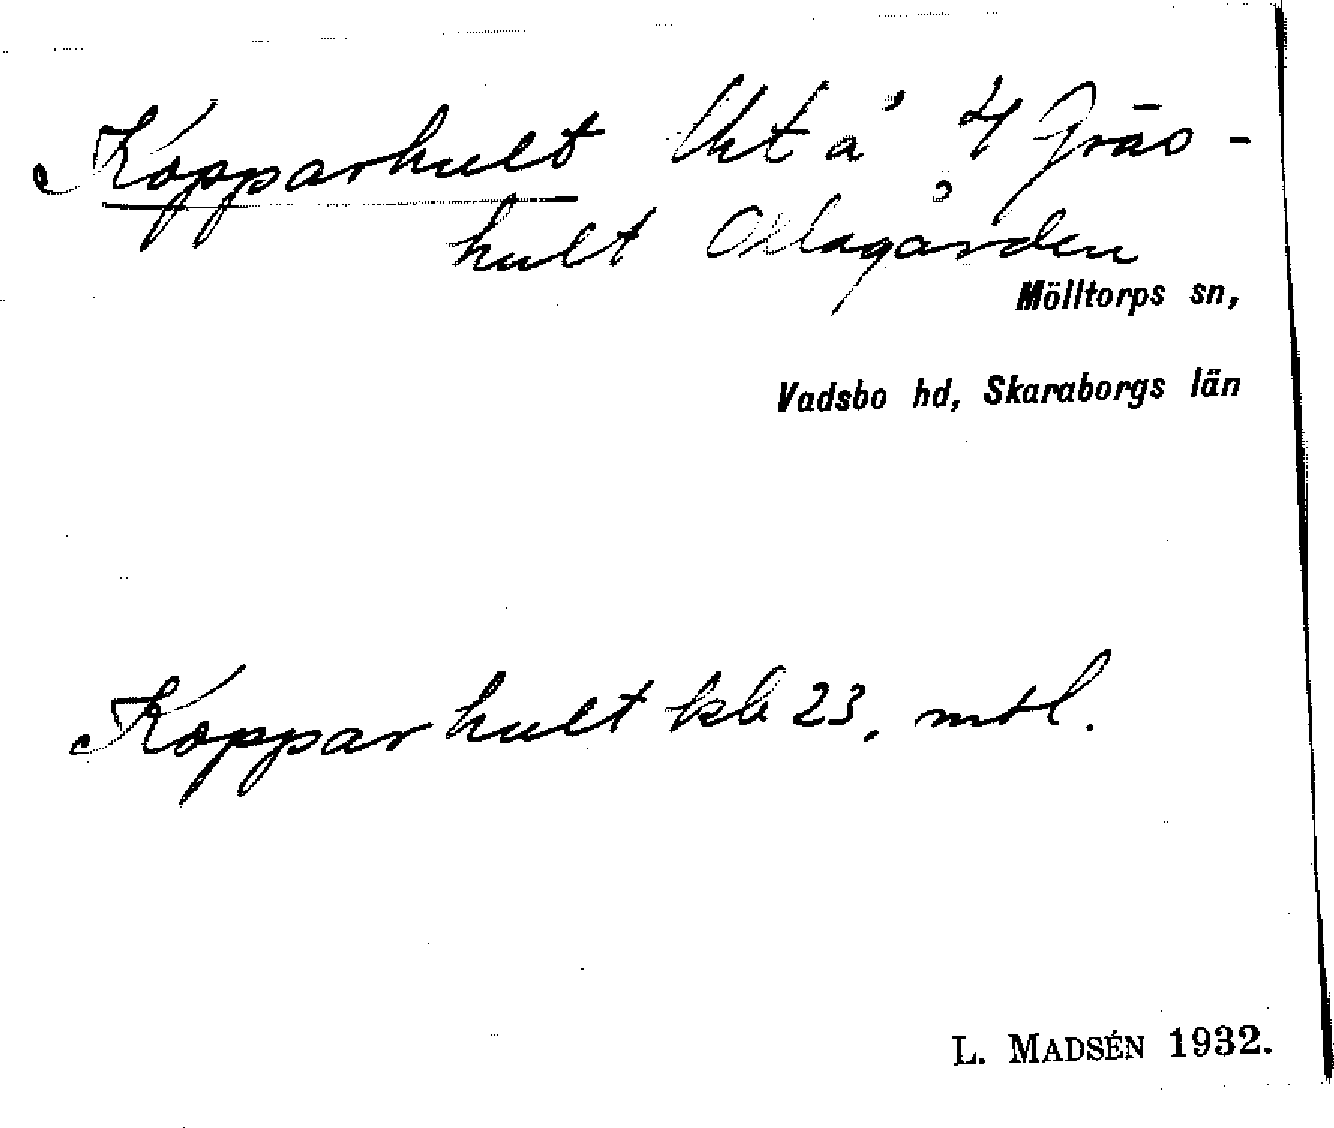 Kopparhult lht å 4 Gräs-
hult Oxlagården
Mölltorps sn,
Vadsbo hd, Skaraborgs län
Kopparhult kb 23, mtl.
L. MADSÉN 1932.